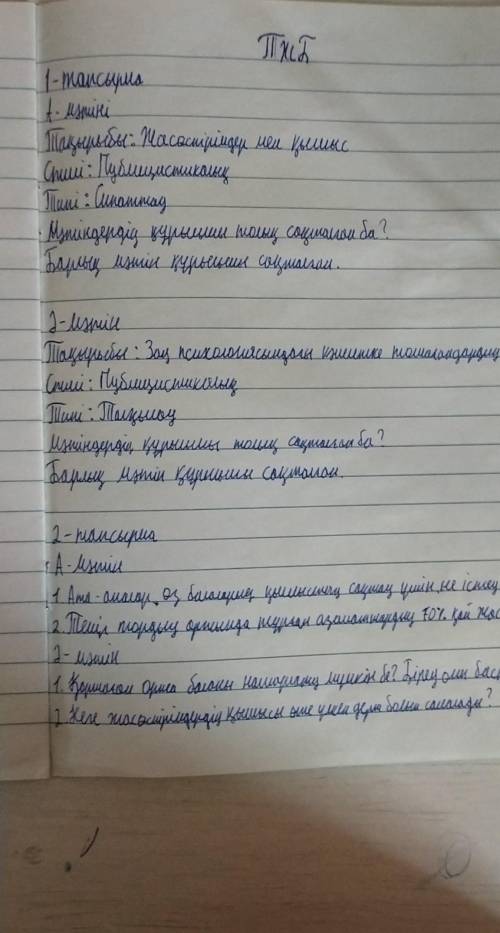 ТЖБ
1-тапсырма
А-мәтіні
Тақырыбы: Жасөспірімдер мен қылмыс
Стилі: Публицистикалық
Типі: Сипаттау
Мәтіндердің құрылымы толық сақталған ба?
Барлық мәтін құрылымы сақталған.
Ә-мәтін
Тақырыбы: Заң психологиясындағы кәмелетке толмағандардың
Стилі: Публицистикалық
Типі: Талқылау
Мәтіндердің құрылымы толық сақталған ба?
Барлық мәтін құрылымы сақталған.
2-тапсырма
А-мәтін
1. Ата-аналар өз балаларын қылмыстан сақтау үшін не істеу
2. Темір тордың ортасында тұрған азаматтардың 70% қай жас
Ә-мәтін
1. Қоршаған орта баланы нашарлатуы мүмкін бе? Біреу оны бас
2. Неге жасөспірімдердің қылмысы өте үлкен дерт болып саналады?